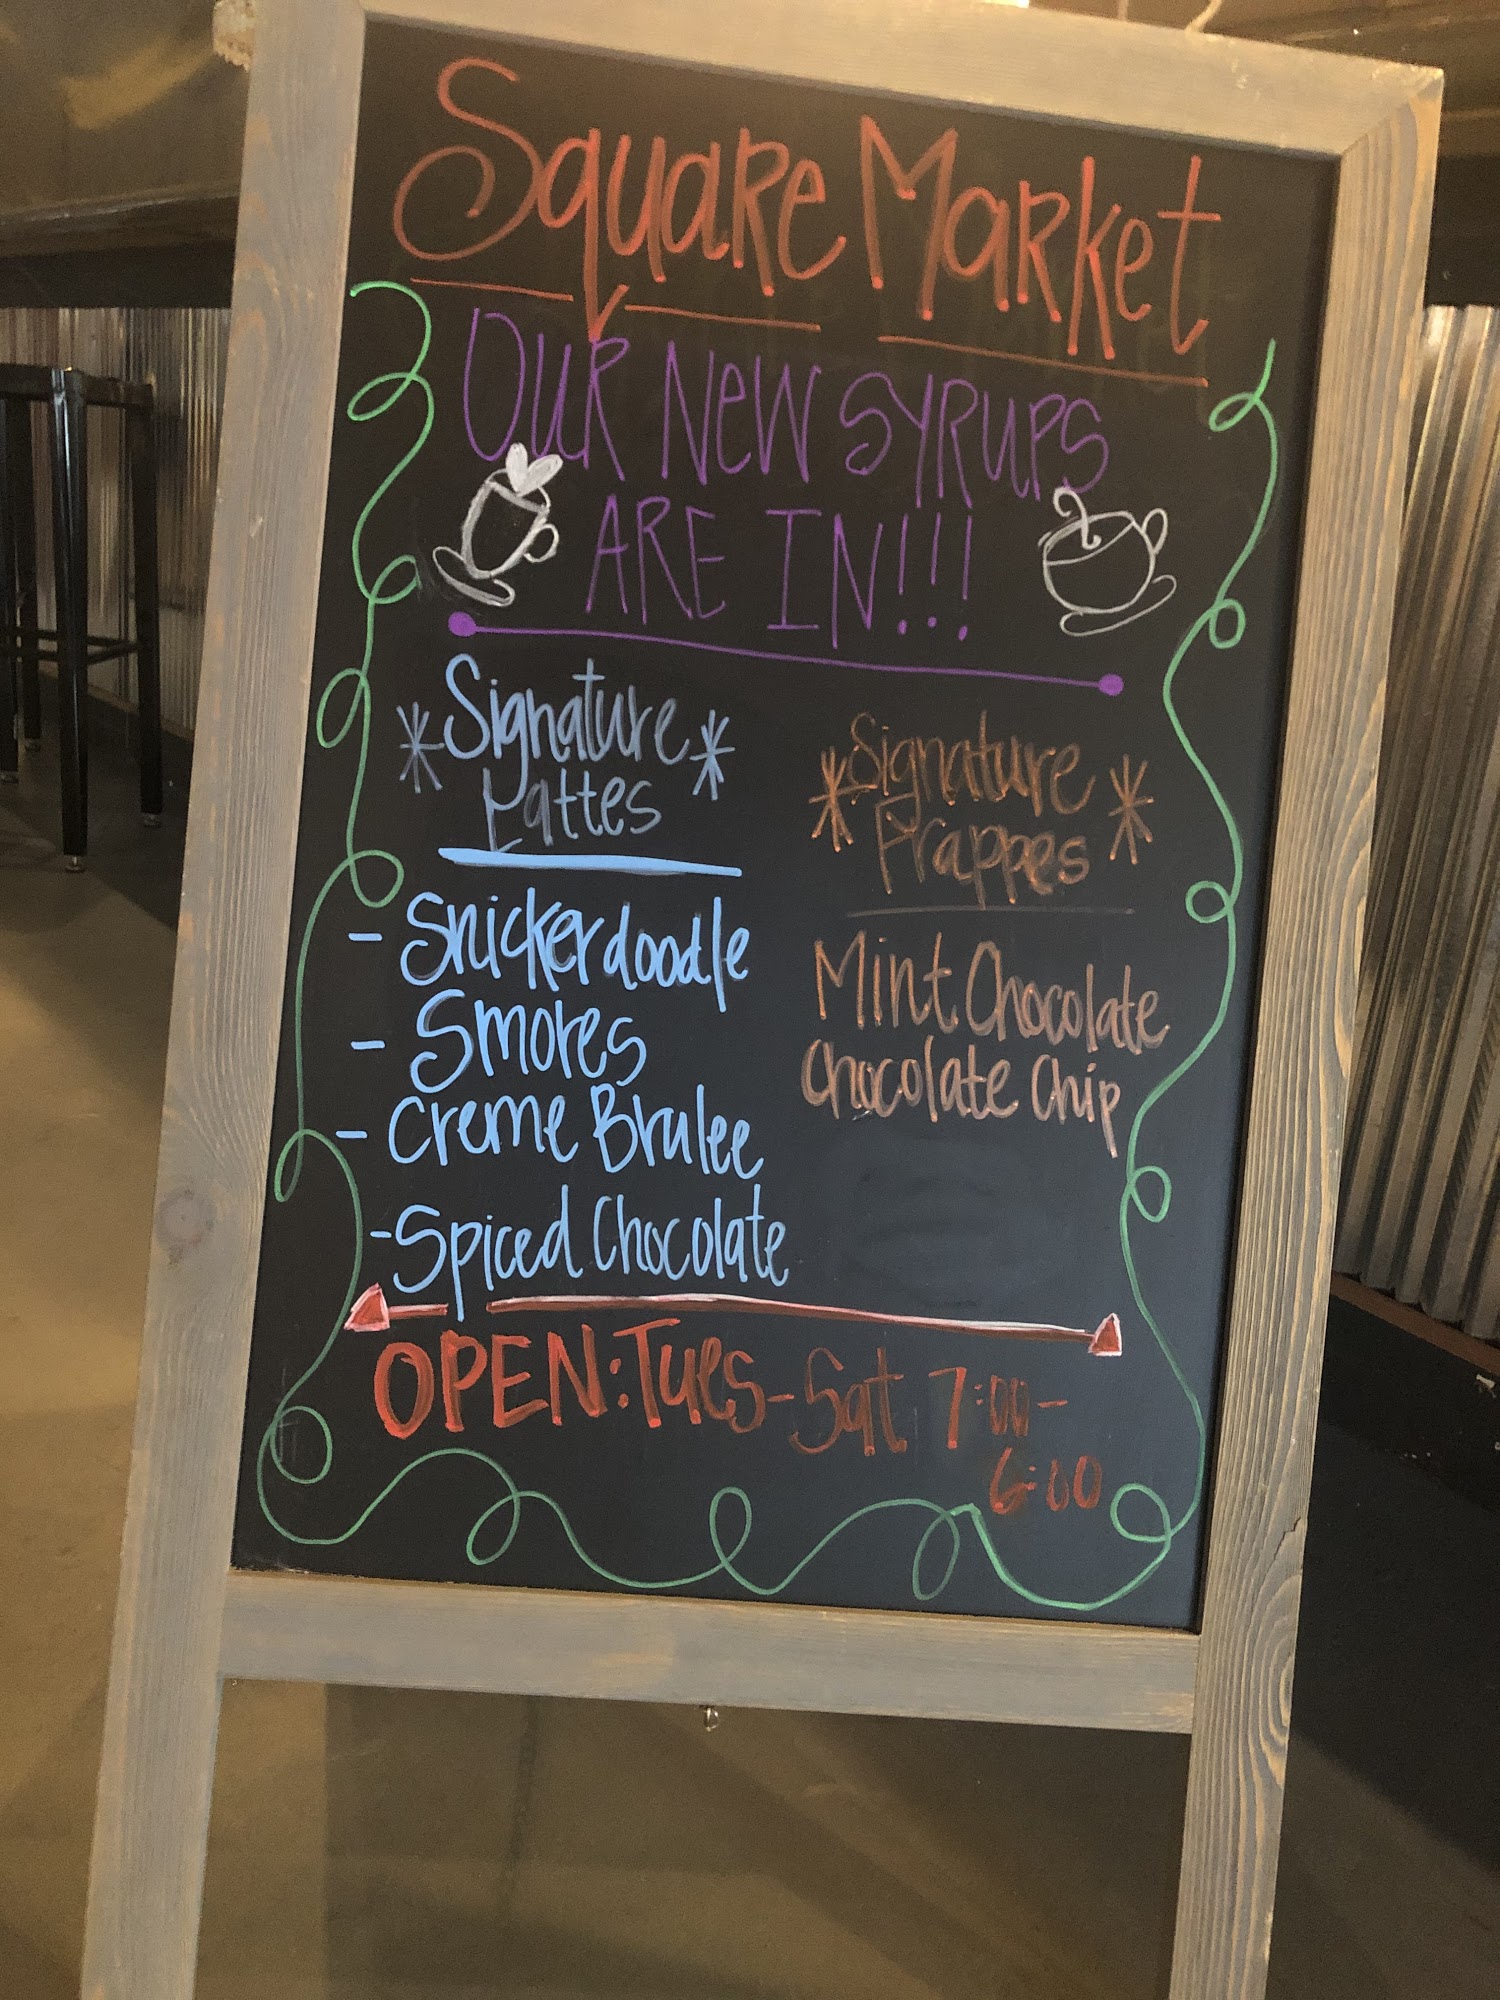 Square Market
OUR NEW SYRUPS
ARE IN!!!
*Signature*
Lattes
- Snickerdoodle
- Smores
- Creme Brulee
- Spiced Chocolate
*Signature*
Frappes
Mint Chocolate
Chocolate Chip
OPEN: Tues-Sat 7:00-
6:00